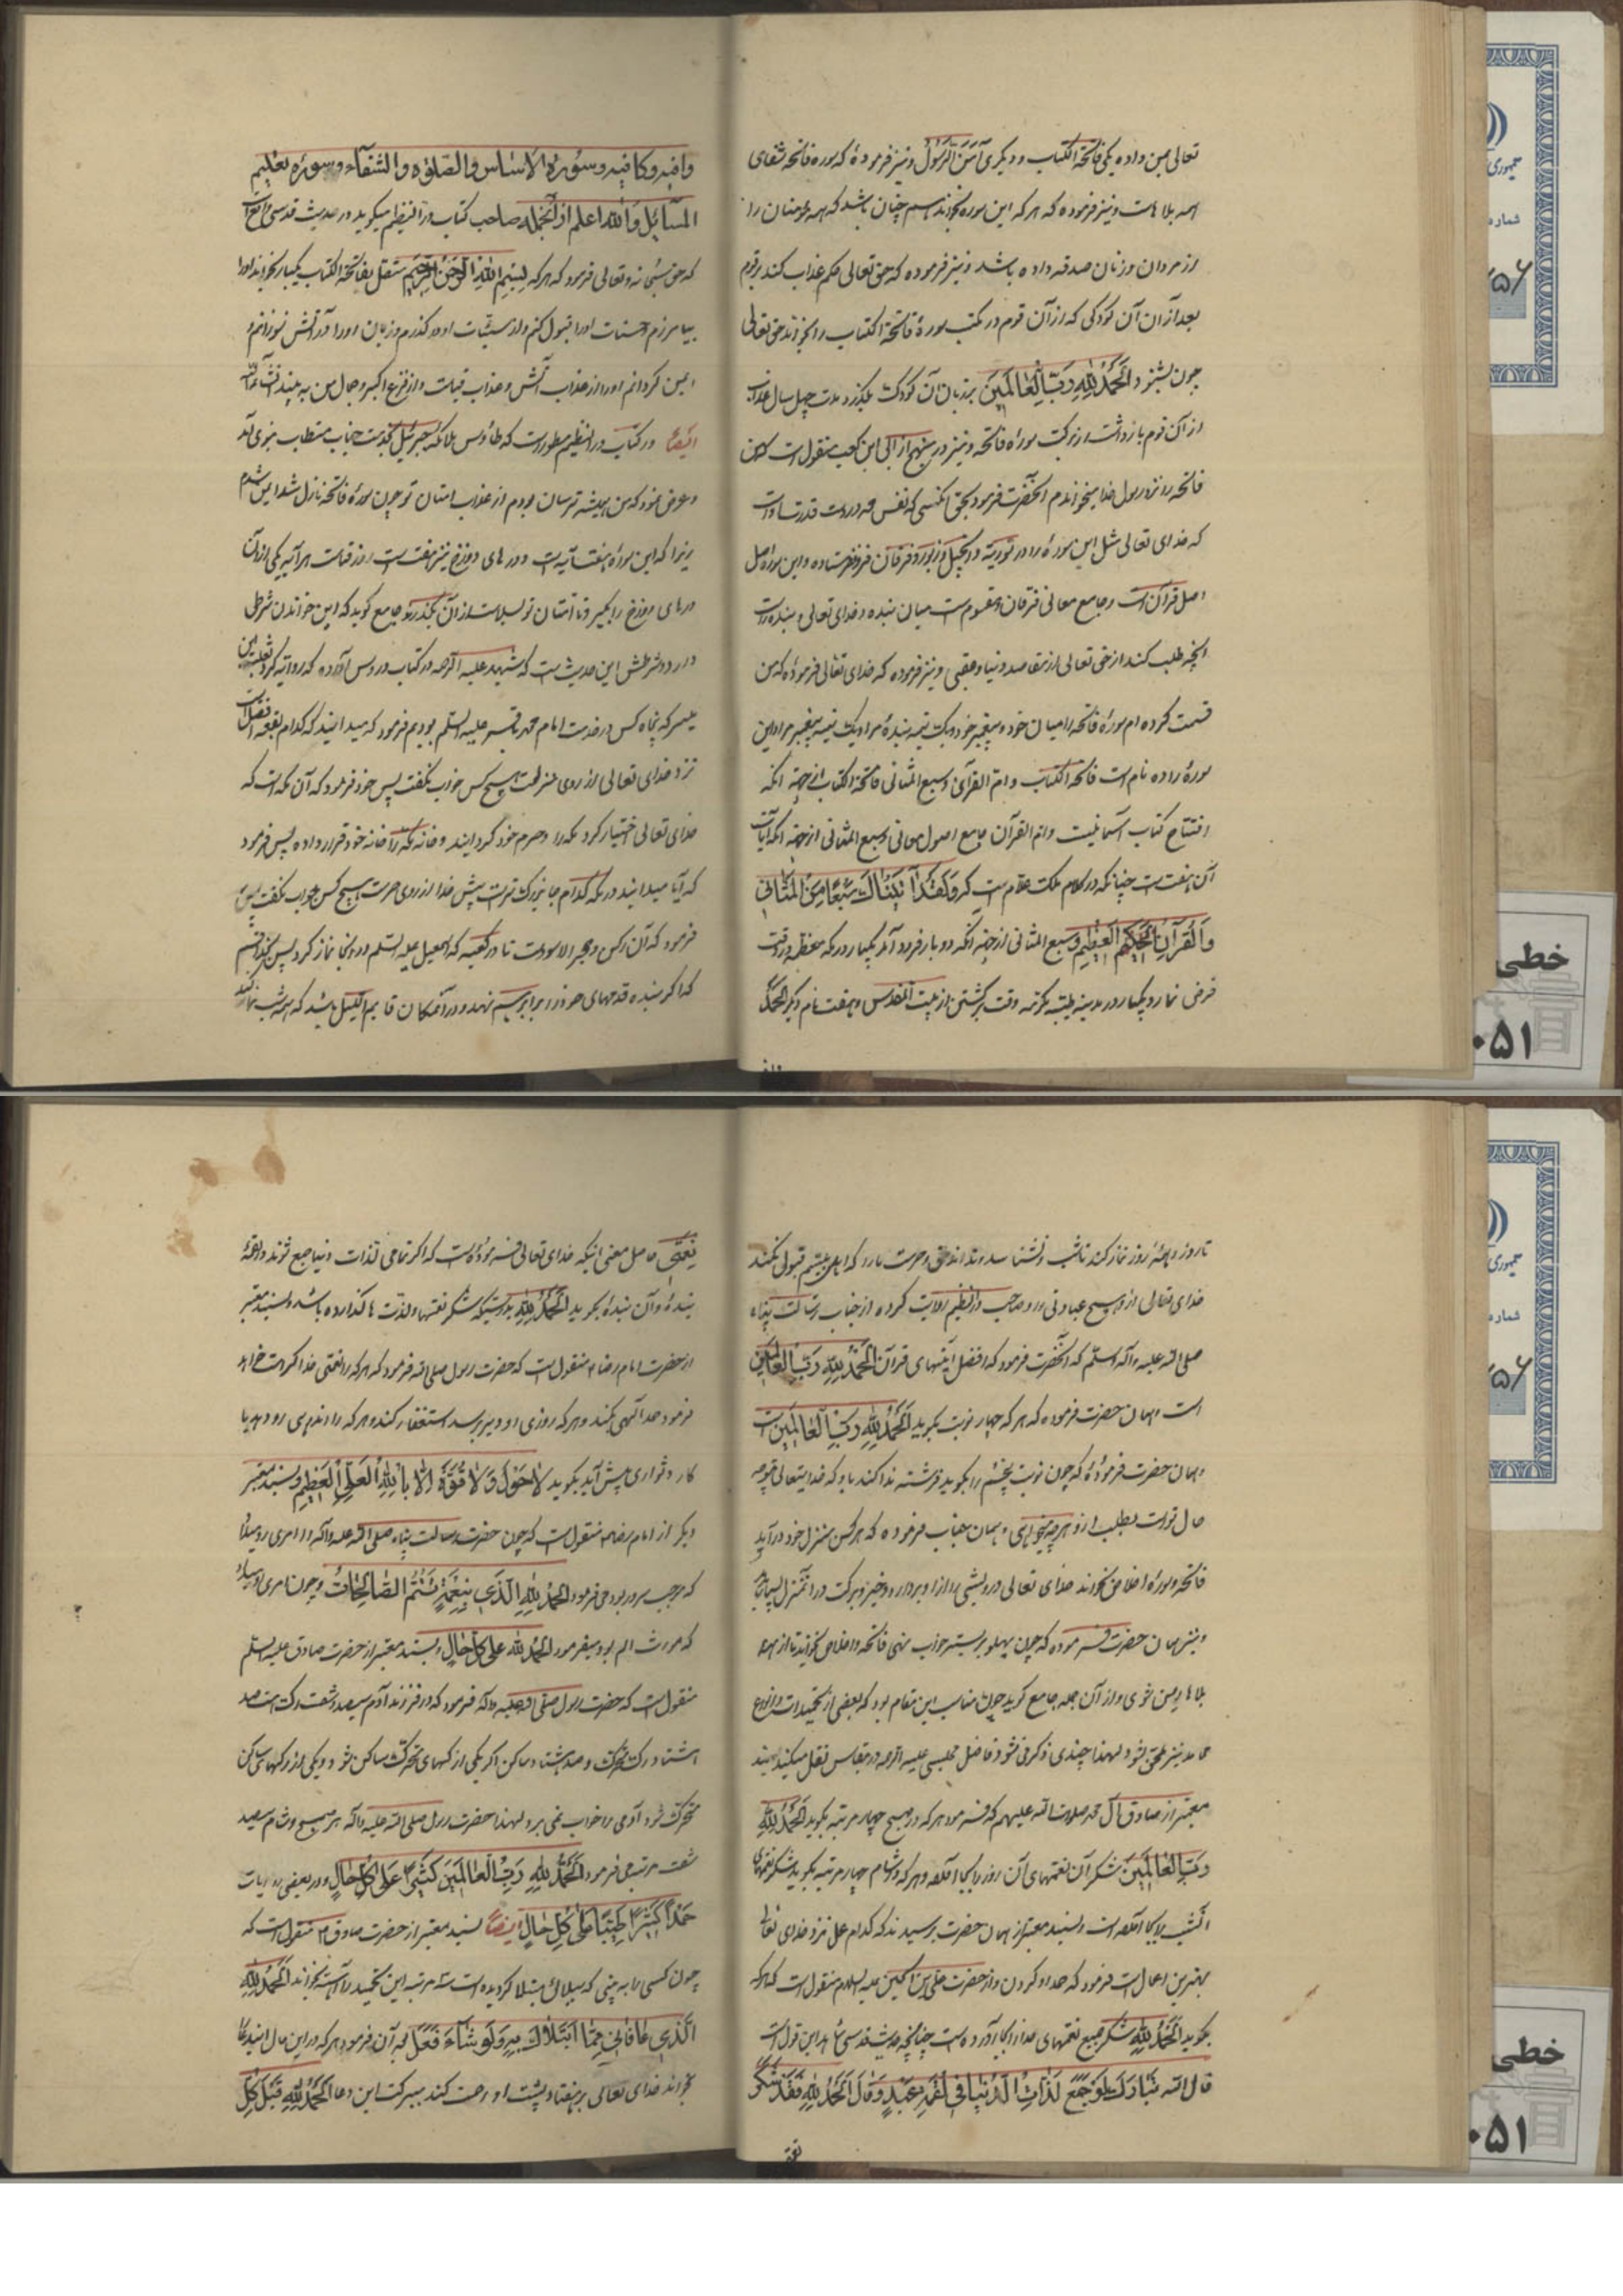 تعالی بمن داده یکی فاتحة الکتاب و دیگری آمن الرسول و نیز فرموده که سوره فاتحه شفای
همه بلاهاست و نیز فرموده که هر که این سوره بخواند چنان باشد که همه مومنان را
از مردان و زنان صدقه داده باشد و نیز فرموده که حق تعالی حکم عذاب کند بر قوم
بعد از آن آن کودکی که از آن قوم در مکتب سورهٔ فاتحة الکتاب را بخواند حق تعالی
چون بشنود الحمد لله رب العالمین بر زبان آن کودک بگذرد مدت چهل سال عذاب
از آن قوم باز داشت از برکت سوره فاتحه و نیز در منهج از ابی ابن کعب منقول است که من
فاتحه را نزد رسول خدا میخواندم آنحضرت فرمود بحق آنکسی که نفس محمد در دست قدرتست
که خدای تعالی مثل این سوره را در توریة و انجیل و زبور و فرقان فرو نفرستاده و این سوره اصل
اصل قرآن است و جامع معانی فرقان و مقسوم است میان بنده و خدای تعالی و بنده راست
آنچه طلب کند از حق تعالی از مقاصد دنیا و عقبی و نیز فرموده که خدای تعالی فرموده که من
قسمت کرده‌ام سورهٔ فاتحه را میان خود و پیغمبر خود و یک نیمه بنده مرا و یک نیمه پیغمبر مرا و این
سوره را ده نام است فاتحة الکتاب و ام القرآن و سبع المثانی فاتحة الکتاب از جهة آنکه
افتتاح کتاب آسمانیست و ام القرآن جامع اصول معانی و سبع المثانی از جهة آنکه آیات
آن هفت است چنانکه در کلام ملک علام است که ولقد آتیناک سبعا من المثانی
والقرآن الحکیم العظیم و سبع المثانی از جهة آنکه دو بار فرود آمد یکبار در مکه معظمه در وقت
فرض نماز و یکبار در مدینه طیبه وقت برگشتن از بیت المقدس و هفت نام دیگر الحمد
وافیه و کافیه و سورة الاساس و الصلوة و الشفاء و سوره تعلیم
المسائل و الله اعلم از آنجمله صاحب کتاب در النظیم میگوید در حدیث قدسی واقع است
که حق سبحانه و تعالی فرمود که هر که بسم الله الرحمن الرحیم متصل بفاتحة الکتاب یکبار بخواند او را
بیامرزم و حسنات او را قبول کنم و از سیئات او در گذرم و زبان او را در آتش نسوزانم و
ایمن گردانم او را از عذاب آتش و عذاب قیامت و از فزع اکبر و جمال من به بیند
ایضا در کتاب در النظیم مسطور است که طاوس ملائکه جبرئیل بخدمت جناب مستطاب نبوی آمد
و عرض نمود که من همیشه ترسان بودم از عذاب امتان تو چون سوره فاتحه نازل شد ایمن شدم
زیرا که این سوره هفت آیه است و درهای دوزخ نیز هفت است روز قیامت هر آیه یکی از آن
درهای دوزخ را بگیرد تا امتان تو بسلامت از آن بگذرند و جامع گوید که این خواندن شرطی
دارد و شرطش این حدیث است که شهید علیه الرحمه در کتاب دروس آورده که روایة کرد ثعلبة بن
میسر که پنجاه کس در خدمت امام محمد باقر علیه السلم بودیم فرمود که میدانید که کدام بقعه افضل است
نزد خدای تعالی از روی منزلت هیچ کس جواب نگفت پس خود فرمود که آن مکه است که
خدای تعالی اختیار کرد مکه را و حرم خود گردانید و خانه مکه را خانه خود قرار داده پس فرمود
که آیا میدانید در مکه کدام جا بزرگتر است پیش خدا از روی حرمت هیچ کس جواب نگفت پس
فرمود که آن رکن و حجر الاسود است تا در کعبه که اسمعیل علیه السلم در آنجا نماز کرد پس بخدا قسم
که اگر بنده قدمهای خود را برابر هم نهد و در آنمکان قایم اللیل باشد که همه شب نماز کند
تا روز و همهٔ روز نماز کند تا شب و نشناسد و نداند حق و حرمت ما را که اهل بیتیم قبول نکند
خدای تعالی از او هیچ عبادتی و صاحب در النظیم روایت کرده از جناب رسالت پناه
صلی الله علیه و آله و سلم که آنحضرت فرمود که افضل آیتهای قرآن الحمد لله رب العالمین
است و همان حضرت فرموده که هر که چهار نوبت بگوید الحمد لله رب العالمین است
و همان حضرت فرموده که چون نوبت پنجم را بگوید فرشته ندا کند باو که خدایتعالی متوجه
حال تو است بطلب از او هر چه میخواهی و همان جناب فرموده که هر کس بمنزل خود در آید
فاتحه و سوره اخلاص بخواند خدای تعالی درویشی را از او بردارد و خیر و برکت در آنمنزل بسیار
و نیز همان حضرت فرموده که چون پهلو بر بستر خواب نهی فاتحه و اخلاص بخوانید تا از همه
بلاها ایمن شوی و از آن جمله جامع گوید چون مناسب این مقام بود که بعضی از تحمیدات و انواع
محامد نیز ملحق شود لهذا چندی ذکر می شود فاضل مجلسی علیه الرحمه در مقباس نقل میکند بسند
معتبر از صادق آل محمد صلوات الله علیهم که فرمود هر که در صبح چهار مرتبه بگوید الحمد لله
رب العالمین شکر آن نعمتهای آن روز را بجا آورد و هر که در شام چهار مرتبه بگوید شکر نعمتهای
آنشب را بجا آورده است و بسند معتبر از همان حضرت پرسیدند که کدام عمل نزد خدای تعالی
بهترین اعمال است فرمود که حمد او کردن و از حضرت علی بن الحسین علیه السلام منقول است که هر که
بگوید الحمد لله شکر جمیع نعمتهای خدا را بجا آورده است چنانچه حدیث قدسی شاهد این قول است
قال الله تبارک لو جمع لذات الدنیا فی لقمة عبد و قال الحمد لله فقد شکر
نعمتی حاصل معنی اینکه خدای تعالی فرموده است که اگر تمامی لذات دنیا جمع شوند در لقمهٔ
بندهٔ و آن بندهٔ بگوید الحمد لله بدرستیکه شکر نعمتها و لذت ها گذارده باشد و بسند معتبر
از حضرت امام رضا منقول است که حضرت رسول صلی الله فرمود که هر که را نعمتی خدا کرامت
فرمود حمد الهی بکند و هر که روزی او دیر برسد استغفار کند و هر که را اندوهی رو دهد یا
کار دشواری پیش آید بگوید لا حول و لا قوة الا بالله العلی العظیم و بسند معتبر
دیگر از امام رضا منقول است که چون حضرت رسالت پناه صلی الله علیه و آله را امری رو میداد
که موجب سرور بود می فرمود الحمد لله الذی بنعمته تتم الصالحات و چون امری رو میداد
که مورث الم بود میفرمود الحمد لله علی کل حال و بسند معتبر از حضرت صادق علیه السلم
منقول است که حضرت رسول صلی الله علیه و آله فرمود که در فرزند آدم سیصد و شصت رگ است صد
و هشتاد رگ متحرک و صد و هشتاد ساکن اگر یکی از رگهای متحرک ساکن شود و یکی از رگهای ساکن
متحرک شود آدمی را خواب نمی برد لهذا حضرت رسول صلی الله علیه و آله هر صبح و شام سیصد
شصت مرتبه می فرمود الحمد لله رب العالمین کثیرا علی کل حال و در بعضی روایات
حمدا کثیرا طیبا علی کل حال ایضا بسند معتبر از حضرت صادق منقول است که
چون کسی را به بینی که ببلائی مبتلا گردیده است سه مرتبه این تحمید را آهسته بخواند الحمد لله
الذی عافانی مما ابتلاک به ولو شاء فعل بعد از آن فرمود هر که در این حال این دعا
بخواند خدای تعالی بر هفتاد پشت او رحمت کند ببرکت این دعا الحمد لله قبل کل